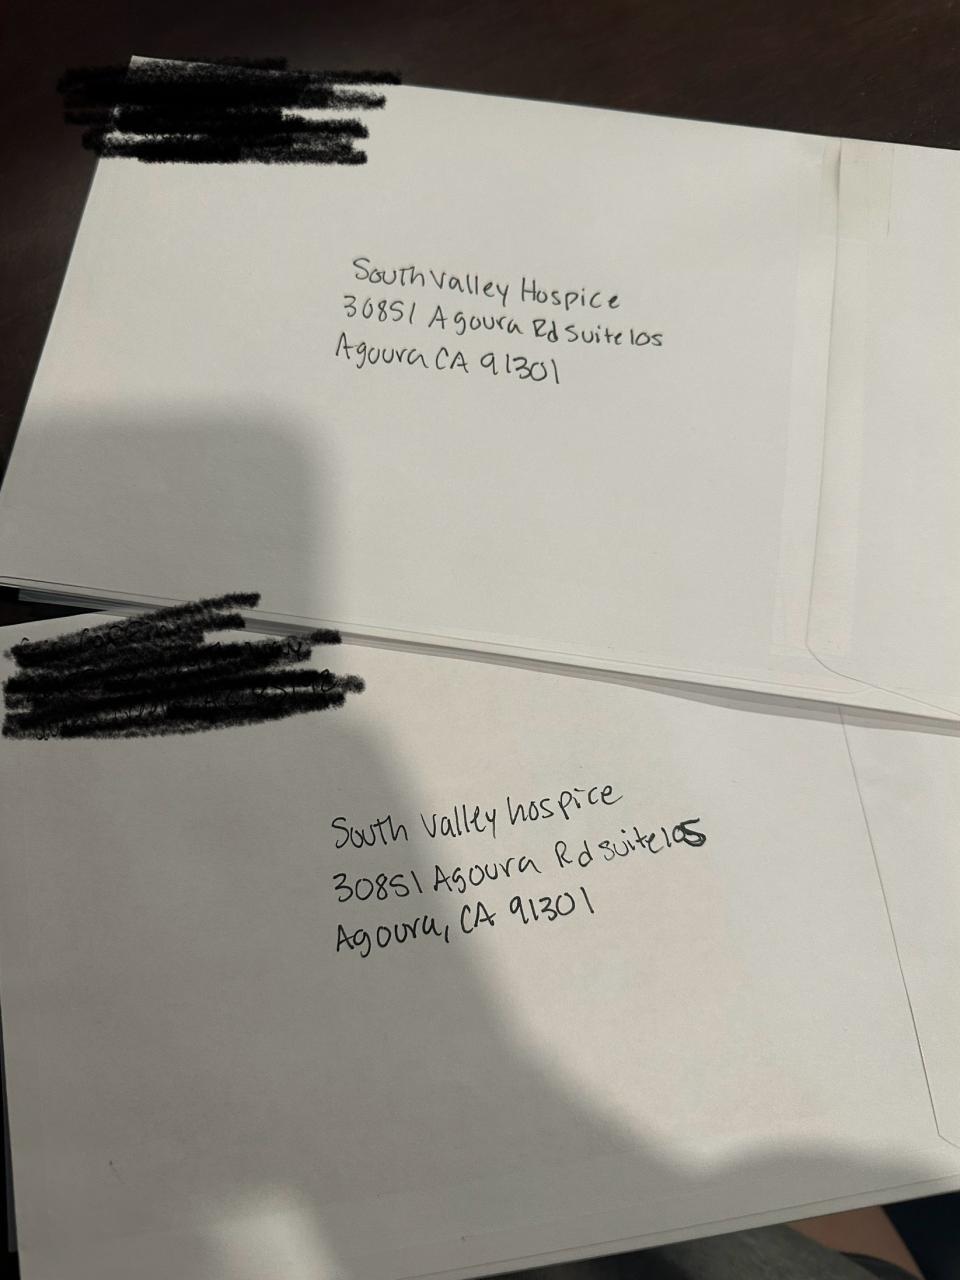 South Valley Hospice
30851 Agoura Rd Suite 105
Agoura CA 91301
South Valley hospice
30851 Agoura Rd suite 105
Agoura, CA 91301